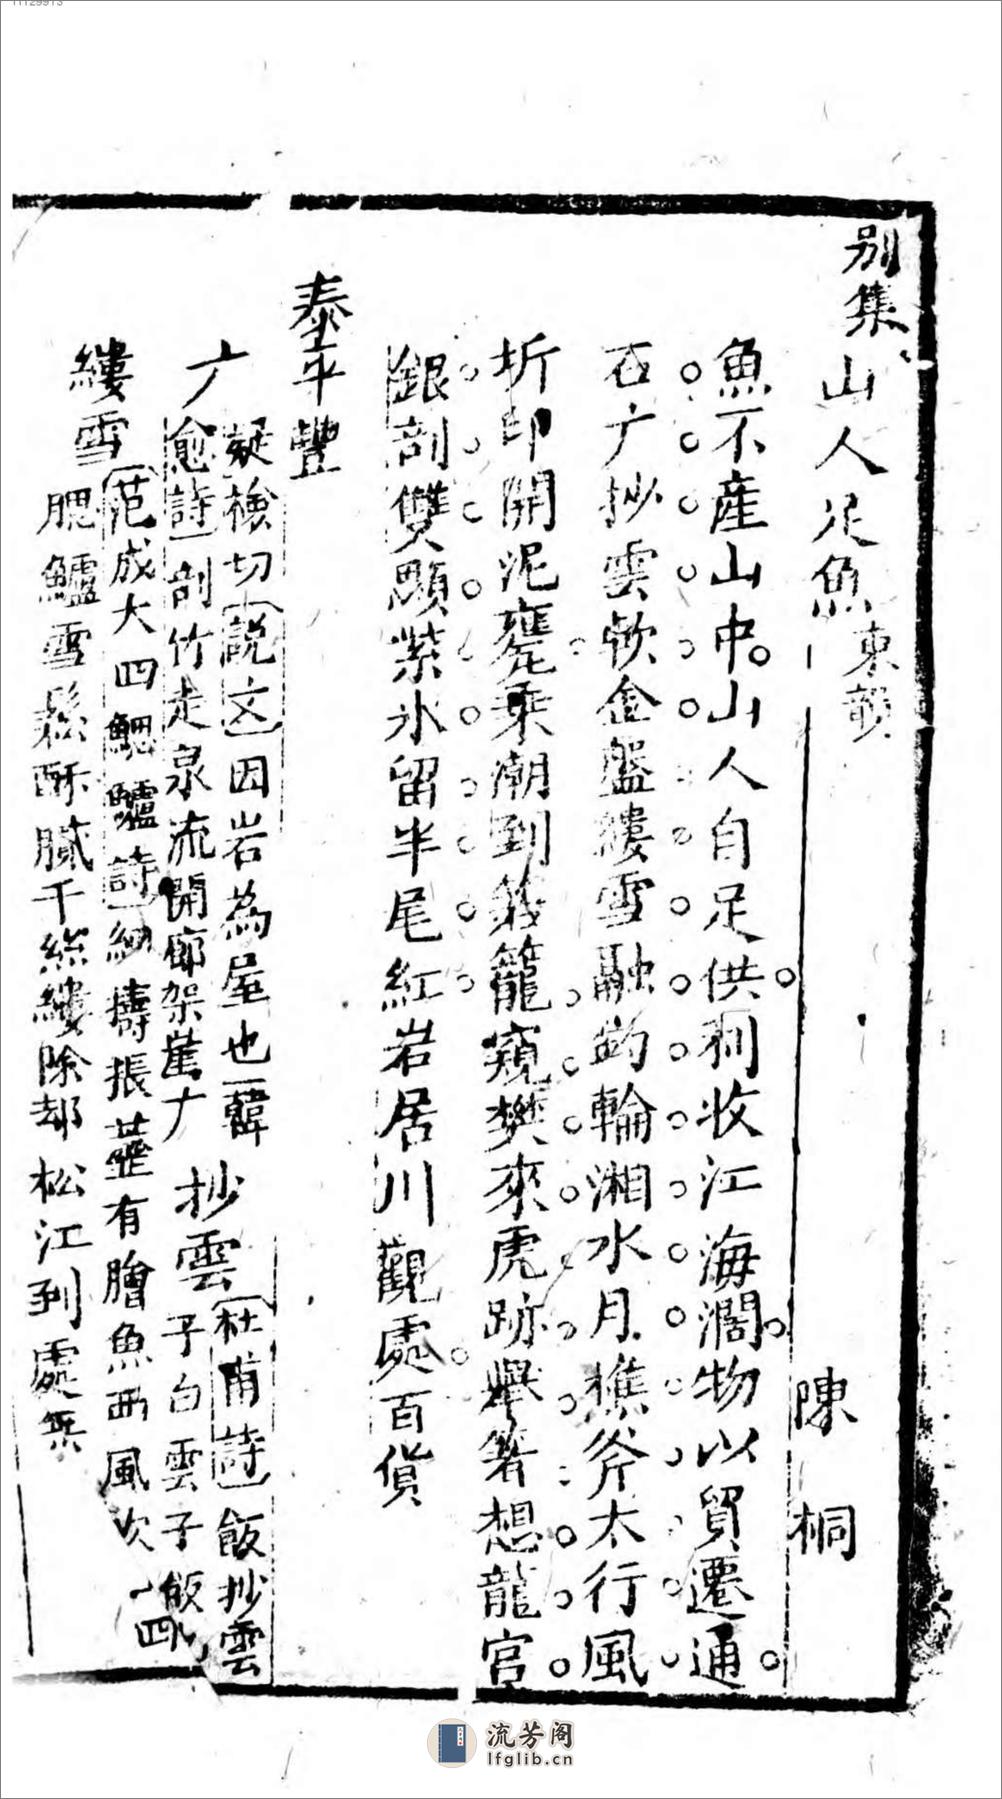 別集 山人足魚 東韻
陳桐
魚不產山中山人自足供利收江海濶物以貿遷通
石广抄雲軟金盤縷雪融的輪湘水月樵斧太行風
折印開泥甕乘潮到籠窺樊來虎跡舉箸想龍宮
銀剖雙顋紫冰留半尾紅岩居川觀處百貨
泰平豐
广 疑檢切說文因岩為屋也韓
愈詩剖竹走泉流開廊架崖广 抄雲 杜甫詩飯抄雲
子白雲子飯
縷雪 范成大四鰓鱸詩細擣棖虀有膾魚西風吹
四腮鱸雪鬆酥膩千絲縷除却松江到處無
流芳阁
lfglib.cn